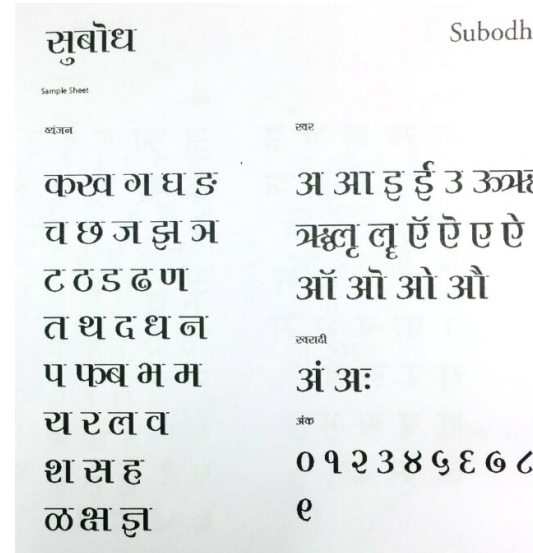 सुबॊध
Subodh
Sample Sheet
व्यंजन
क ख ग घ ङ
च छ ज झ ञ
ट ठ ड ढ ण
त थ द ध न
प फ ब भ म
य र ल व
श स ह
ळ क्ष ज्ञ
स्वर
अ आ इ ई उ ऊ ऋ
ॠ ऌ ॡ ऍ ऎ ए ऐ
ऑ ऒ ओ औ
स्वरादी
अं अः
अंक
० १ २ ३ ४ ५ ६ ७ ८
९